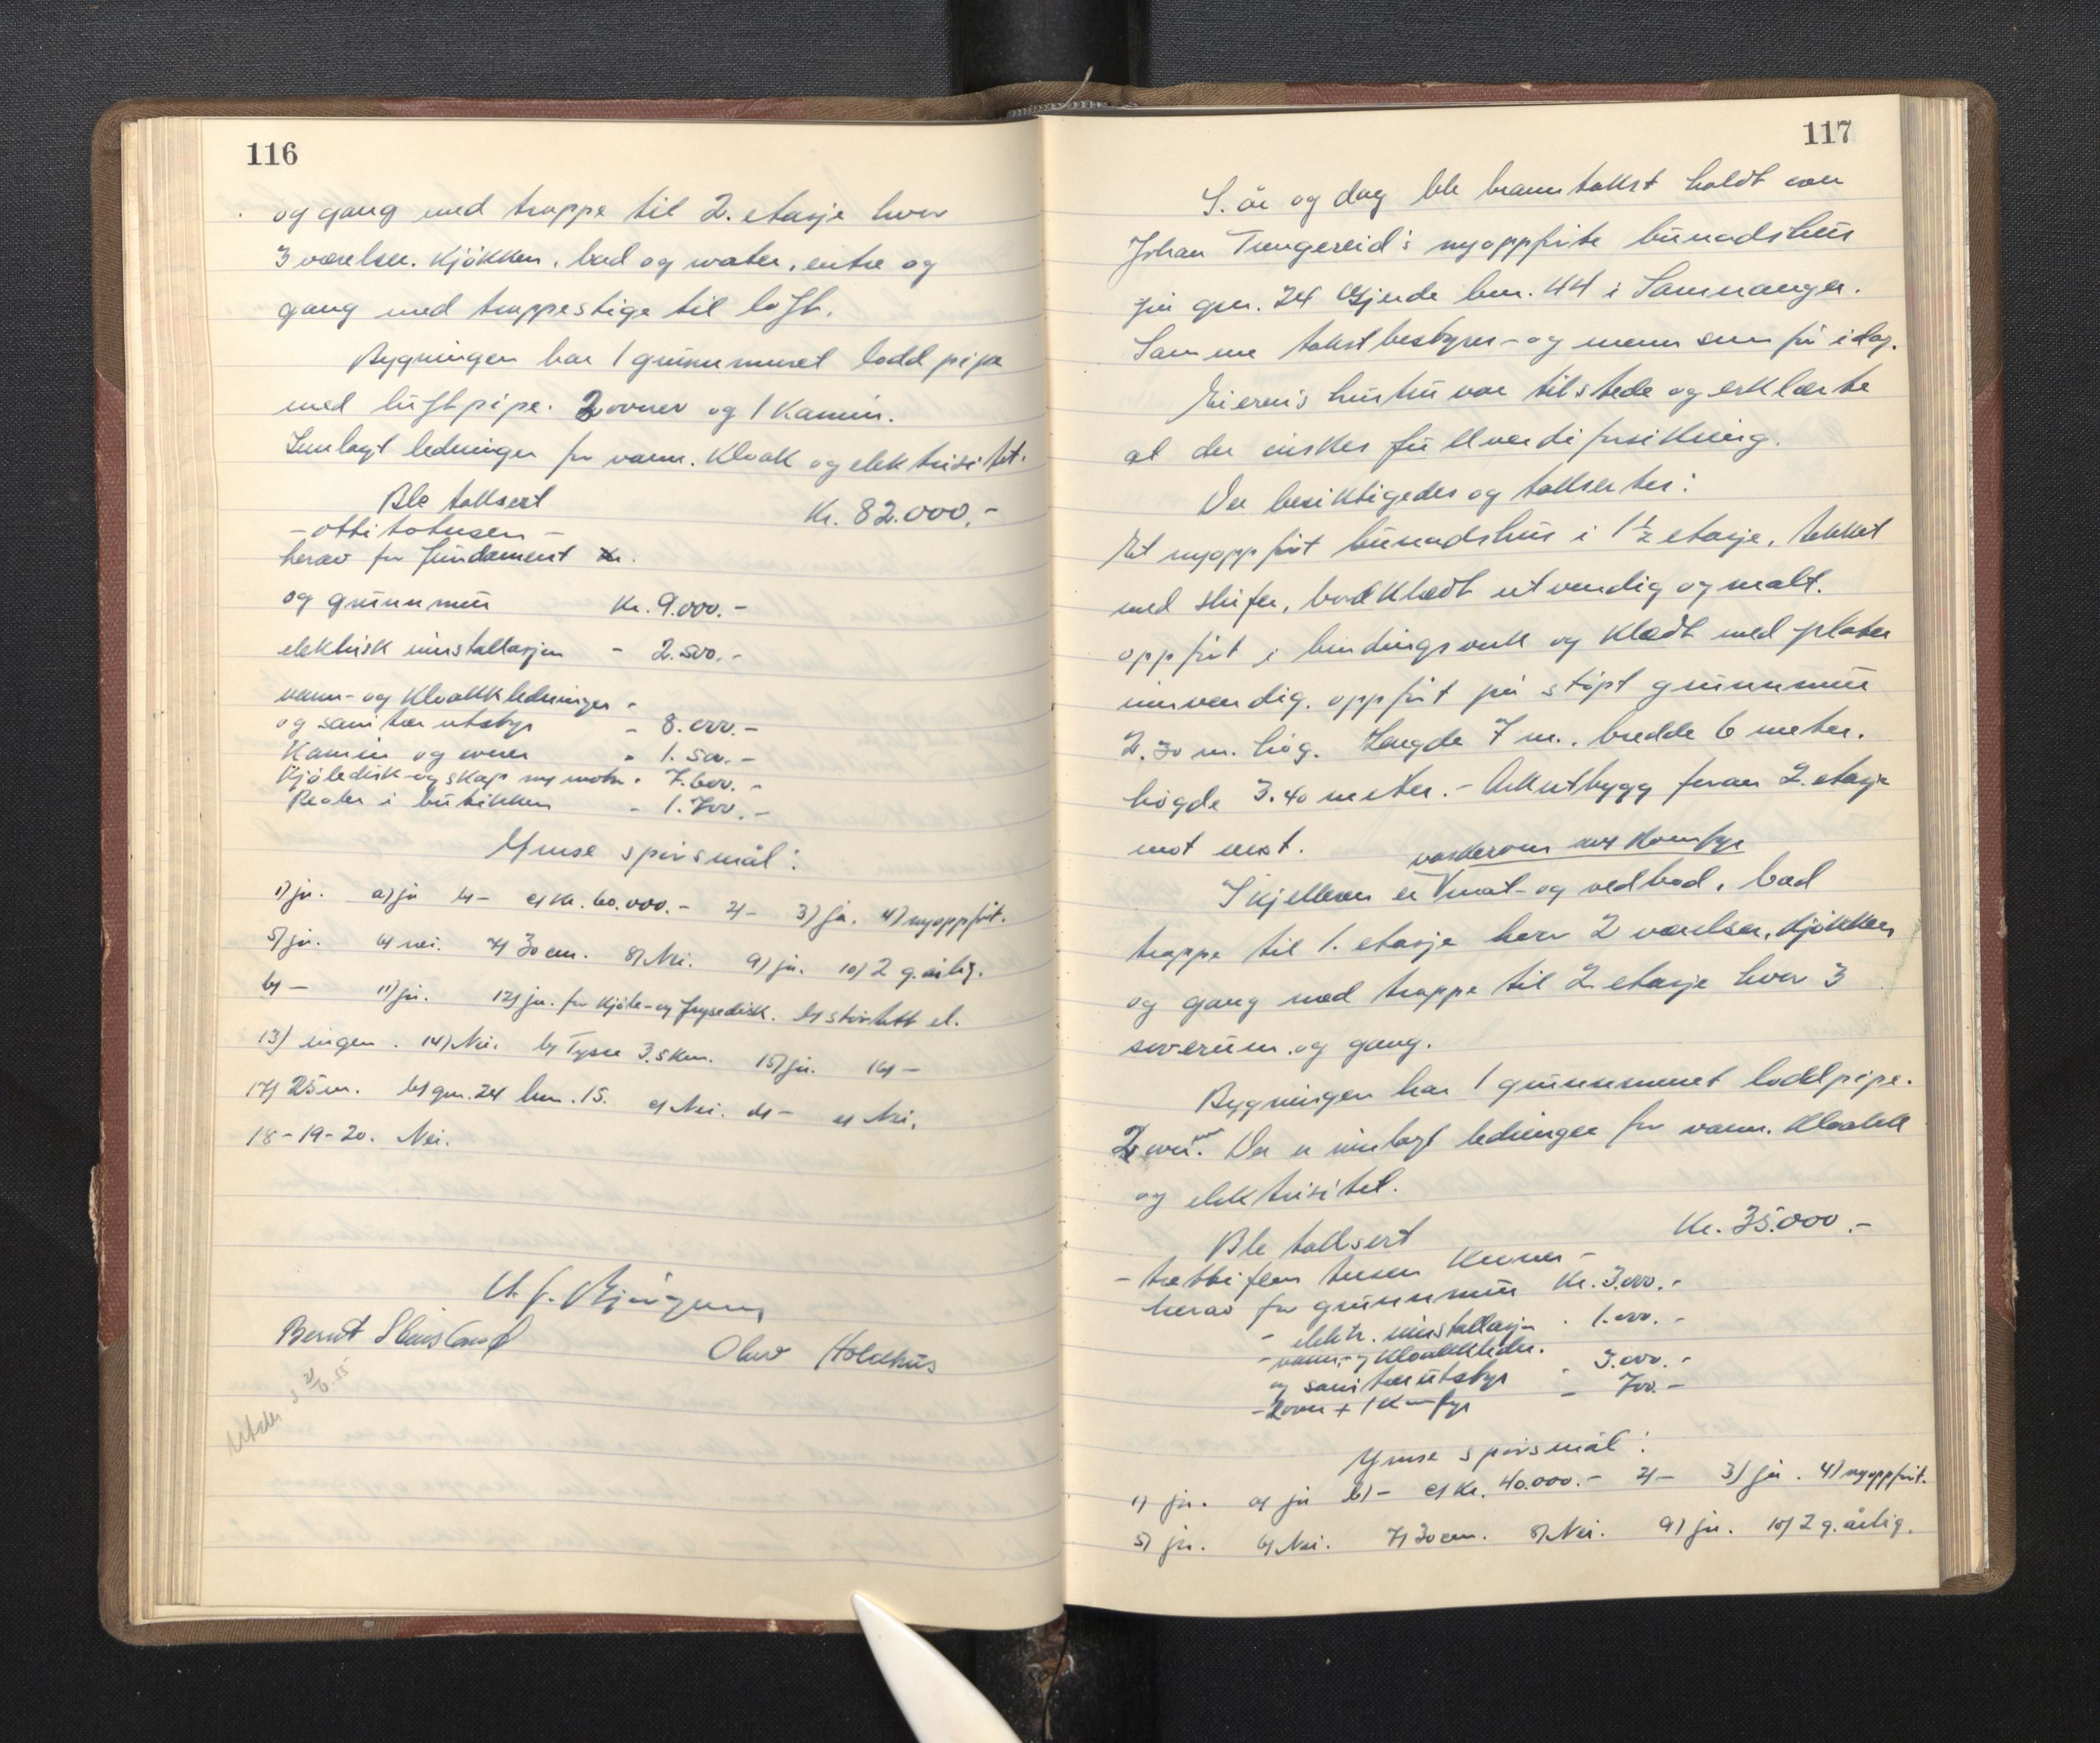 116
og gang med trappe til 2. etasje hvor
3 værelser. Kjøkken, bad og water, entre og
gang med trappestige til loft.
Bygningen har 1 grunnmuret loddpipe
med luftpipe. 2 ovner og 1 Kamin.
Innlagt ledninger for vann. Kloak og elektrisitet.
Ble taksert Kr. 82.000,-
- ottitotusen -
herav for fundament
og grunnmur Kr. 9.000.-
elektrisk installasjon - 2.500.-
vann- og Kloakkledninger
og sanitær utstyr - 8.000.-
Kamin og ovner - 1.500.-
Kjøledisk- og skap m motor. 7.600.-
Reoler i butikken - 1.700.-
Ymse spørsmål:
1) ja. a) ja b) - c) Kr. 60.000.- 2) - 3) ja. 4) nyoppført.
5) ja. 6) nei. 7) 30 cm. 8) Nei. 9) ja. 10) 2 g. årlig.
b) - 11) ja. 12) ja. for Kjøle- og frysedisk. b) støvtett el.
13) ingen. 14) Nei. b) Tysse 3.5 km. 15) ja. 16) -
17) 25 m. b) gnr. 24 bnr. 15. c) Nei. d) - e) Nei.
18-19-20. Nei.
Olav Holdhus
117
S. år og dag ble branntakst holdt over
Johan Tvengereid's nyoppførte bunadshus
på gnr. 24 Gjerde bnr. 44 i Samnanger.
Samme takstbestyrer- og menn som før idag.
Eieren's hustru var tilstede og erklærte
at der ønskes fullverdiforsikring.
Der besiktigedes og taksertes:
Et nyoppført bunadshus i 1 1/2 etasje, tekket
med skifer, bordklædt utvendig og malt.
oppført i bindingsverk og klædt med plater
innvendig. oppført på støpt grunnmur
2.30 m. høg. Lengde 7 m., bredde 6 meter.
høgde 3.40 meter. - Arkutbygg foran 2. etasje
mot vest.
vaskerom m/ Komfyr
I kjelleren er mat- og vedbod, bad
trappe til 1. etasje hvor 2 værelser, Kjøkken
og gang med trappe til 2 etasje hvor 3
soverum og gang.
Bygningen har 1 grunnmuret loddpipe.
2 ovner. Der er innlagt ledninger for vann. Kloakk
og elektrisitet.
Ble taksert Kr. 35.000.-
- trettifem tusen Kroner -
herav for grunnmur Kr. 3.000.-
- elektr. installasjon - 1.000.-
- vann- og Kloakkledn.
og sanitærutstyr - 3.000.-
- 2 ovner + 1 Komfyr - 700.-
Ymse spørsmål:
1) ja. a) ja b) - c) Kr. 40.000.- 2) - 3) ja. 4) nyoppført.
5) ja. 6) Nei. 7) 30 cm. 8) Nei. 9) ja. 10) 2 g. årlig.